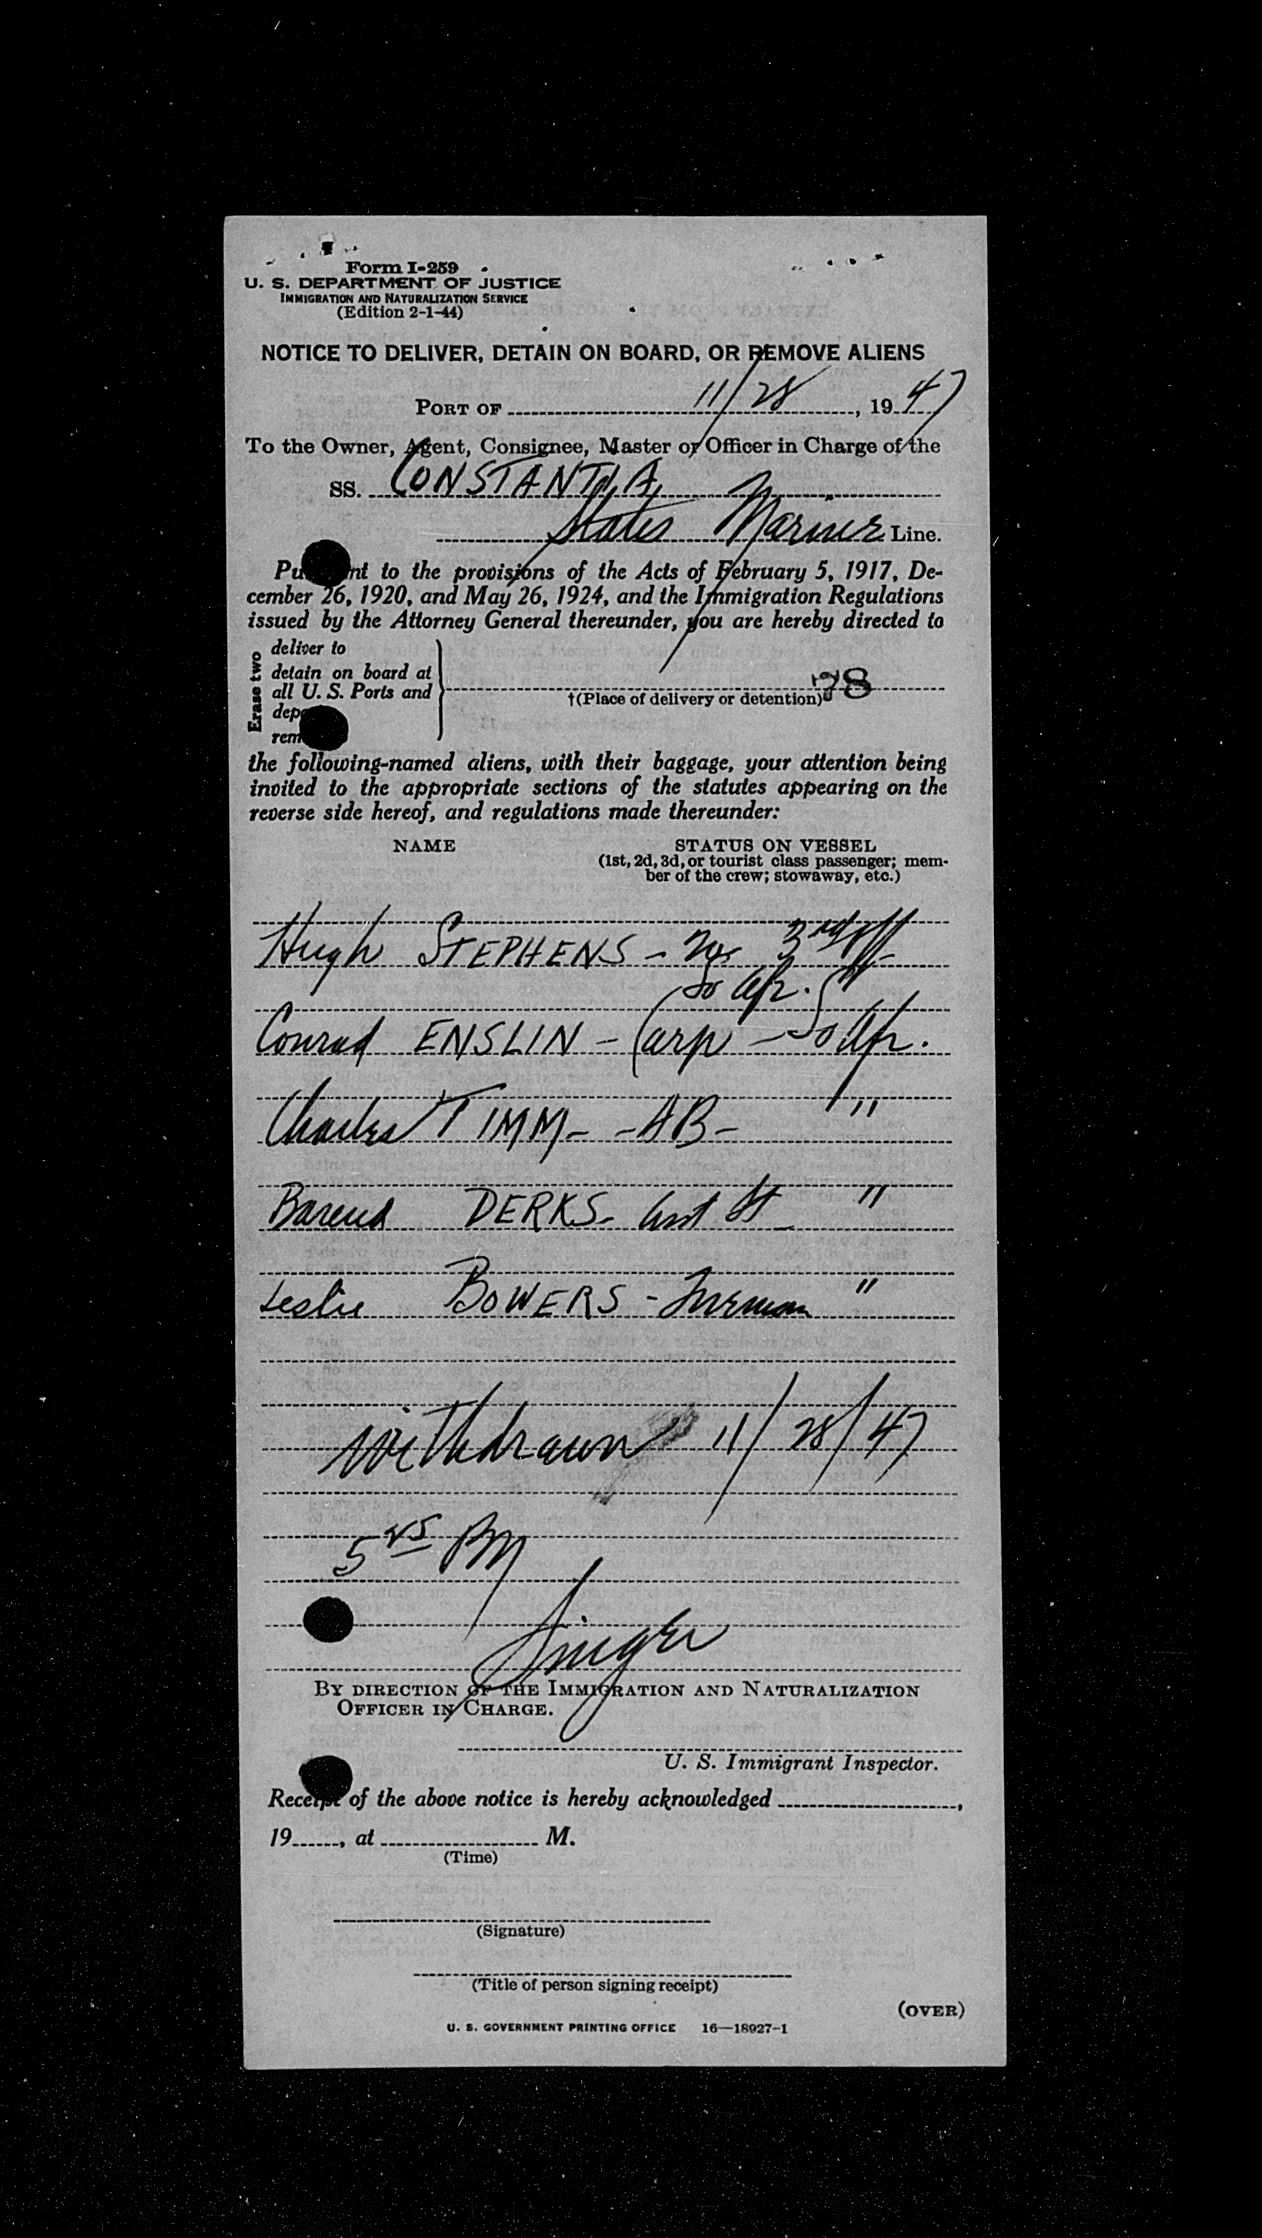 Form I-259
U. S. DEPARTMENT OF JUSTICE
IMMIGRATION AND NATURALIZATION SERVICE
(Edition 2-1-44)
NOTICE TO DELIVER, DETAIN ON BOARD, OR REMOVE ALIENS
PORT OF 11/28, 1947
To the Owner, Agent, Consignee, Master or Officer in Charge of the
SS. CONSTANTIA
States Marine Line.
Pu nt to the provisions of the Acts of February 5, 1917, De-
cember 26, 1920, and May 26, 1924, and the Immigration Regulations
issued by the Attorney General thereunder, you are hereby directed to
Erase two
deliver to
detain on board at
all U. S. Ports and
dep
rem
†(Place of delivery or detention)
78
the following-named aliens, with their baggage, your attention being
invited to the appropriate sections of the statutes appearing on the
reverse side hereof, and regulations made thereunder:
NAME STATUS ON VESSEL
(1st, 2d, 3d, or tourist class passenger; mem-
ber of the crew; stowaway, etc.)
Hugh STEPHENS - 3rd off
So Afr.
Conrad ENSLIN - Carp - So Afr.
Charles TIMM - - AB - "
Barend DERKS - St "
Leslie BOWERS - Fireman "
Withdrawn 11/28/47
5 25 PM
Singer
BY DIRECTION OF THE IMMIGRATION AND NATURALIZATION
OFFICER IN CHARGE.
U. S. Immigrant Inspector.
Receipt of the above notice is hereby acknowledged ,
19 , at M.
(Time)
(Signature)
(Title of person signing receipt)
(OVER)
U. S. GOVERNMENT PRINTING OFFICE 16—18927-1